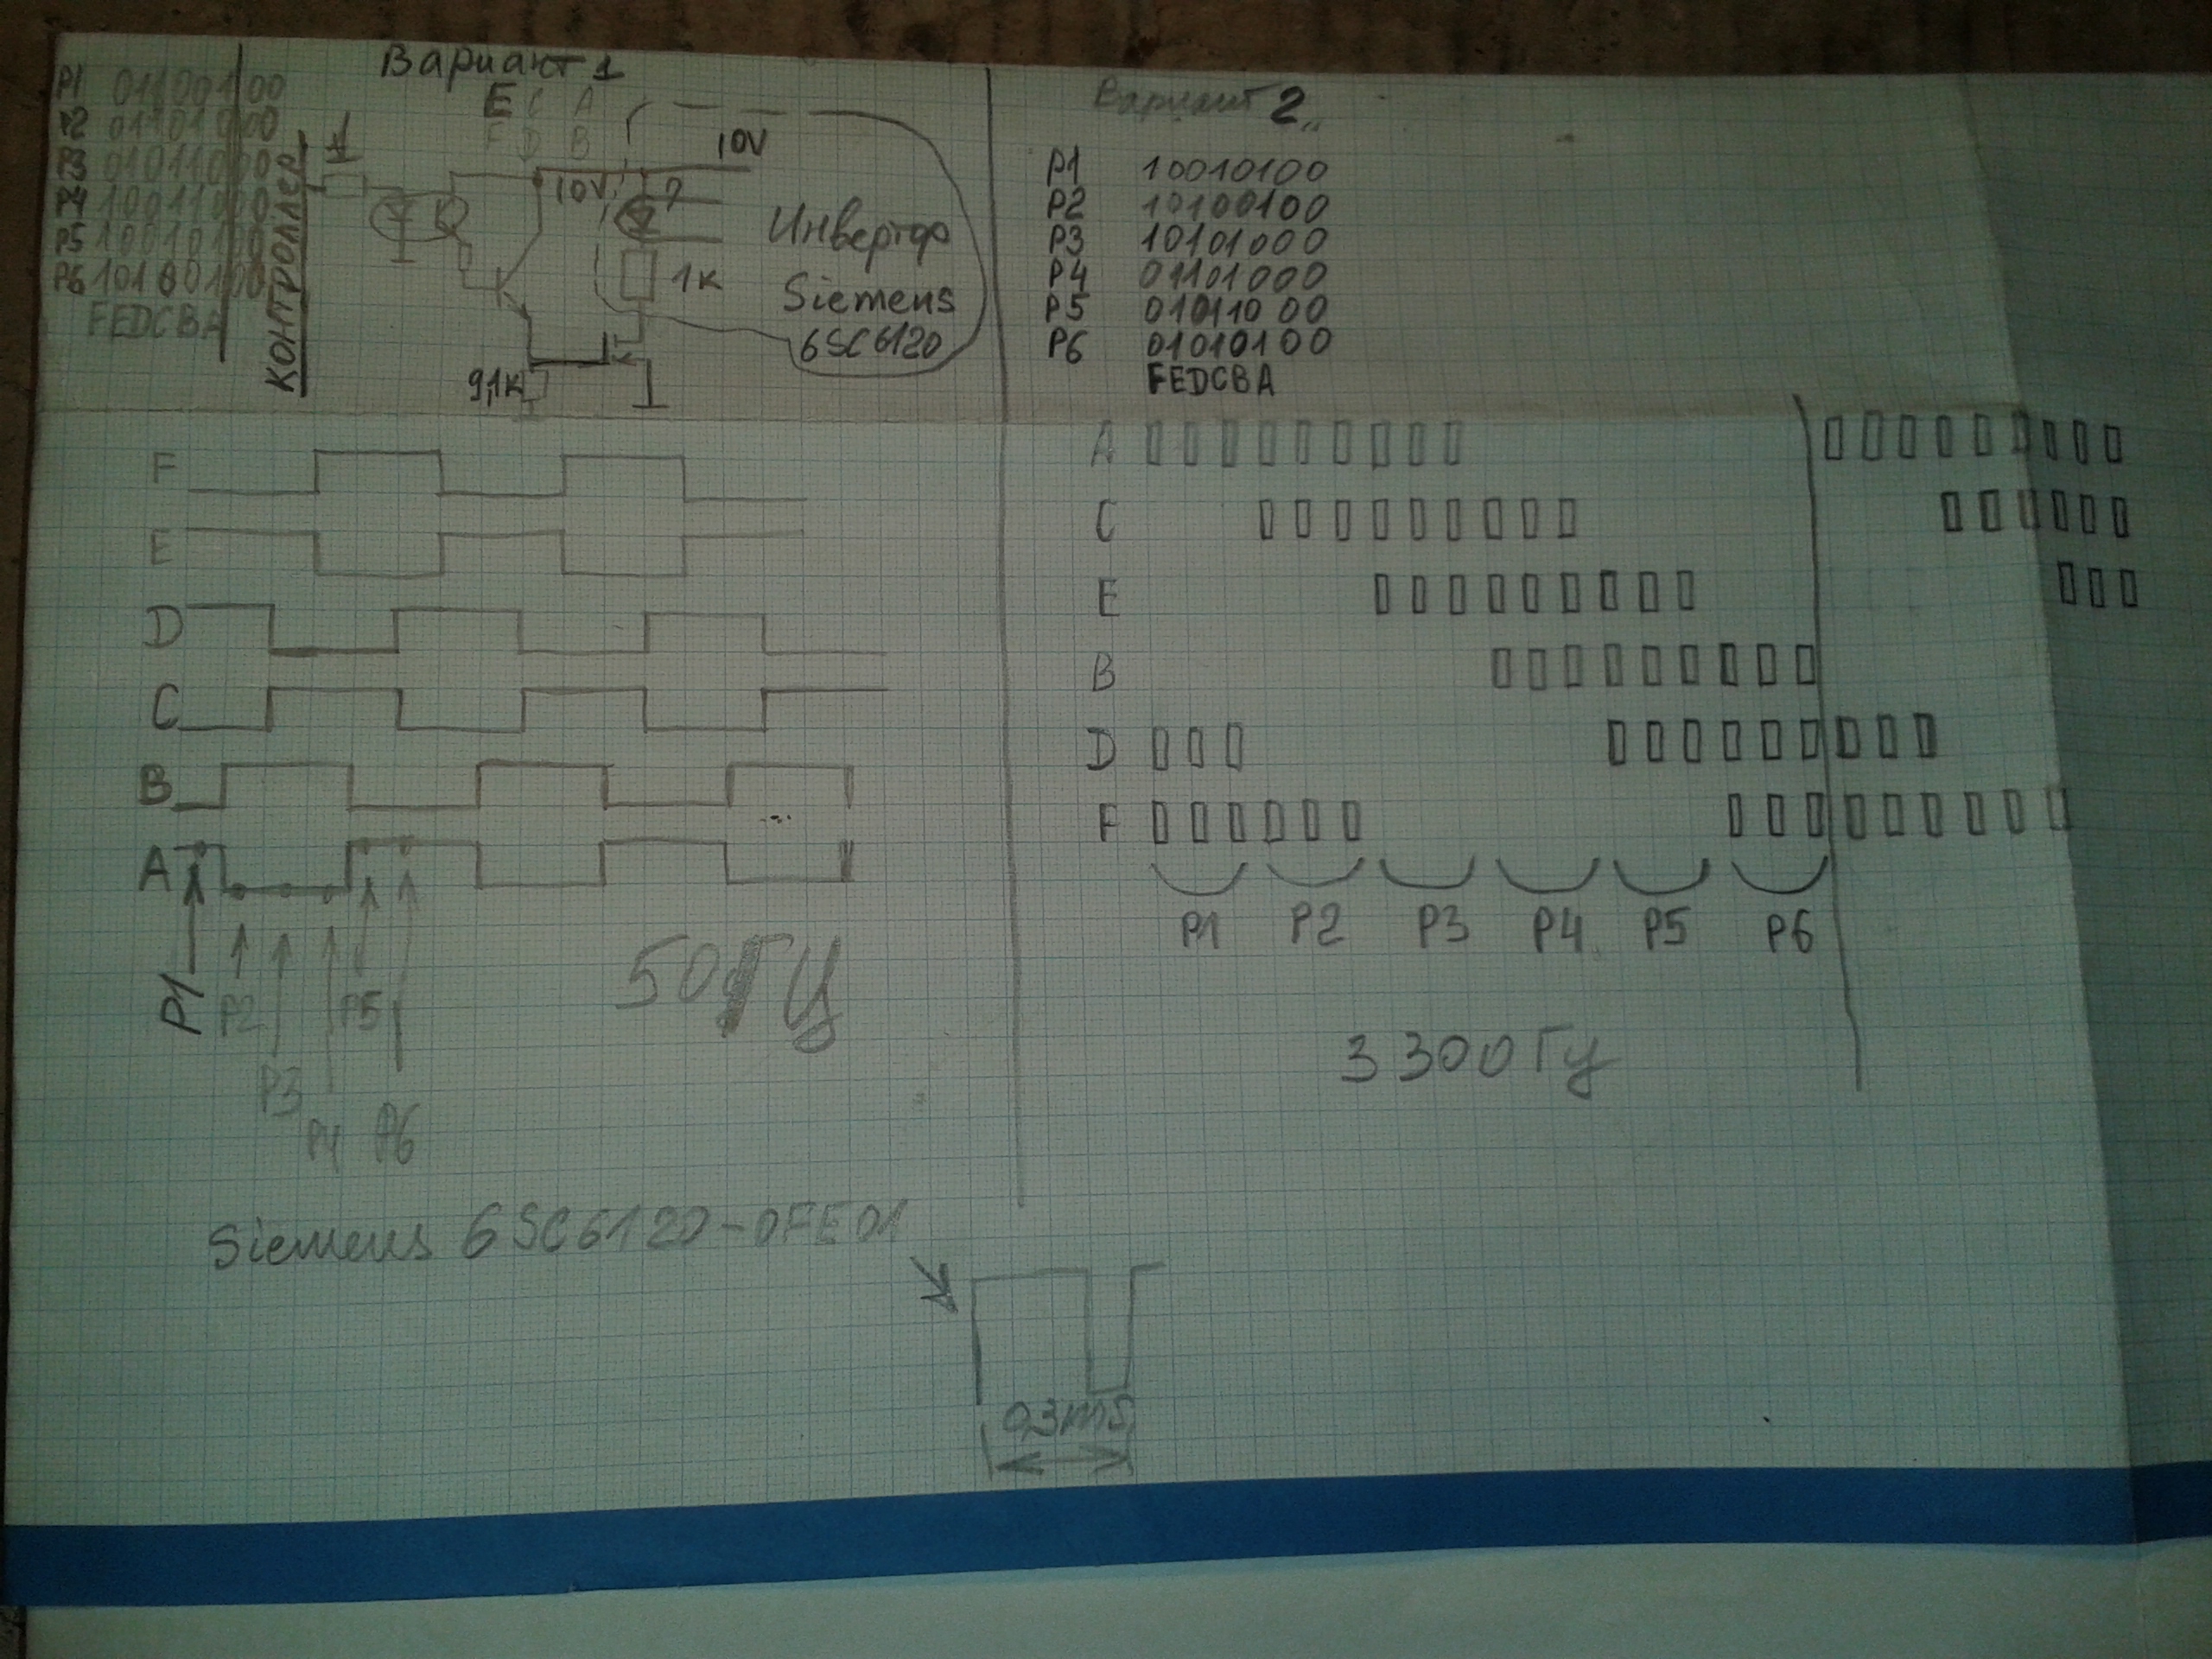 Вариант 1
P1 01100100
P2 01101000
P3 01011000
P4 10011000
P5 10010100
P6 10100100
FEDCBA
КОНТРОЛЛЕР
1к
E C A
F D B
10V
10V
?
Инвертор
1к
Siemens
6SC6120
9,1к
Вариант 2
P1 10010100
P2 10100100
P3 10101000
P4 01101000
P5 01011000
P6 01010100
FEDCBA
F
E
D
C
B
A
P1
P2
P3
P4
P5
P6
50ГЦ
A
C
E
B
D
F
P1 P2 P3 P4 P5 P6
3300Гц
Siemens 6SC6120-0FE01
0,3ms